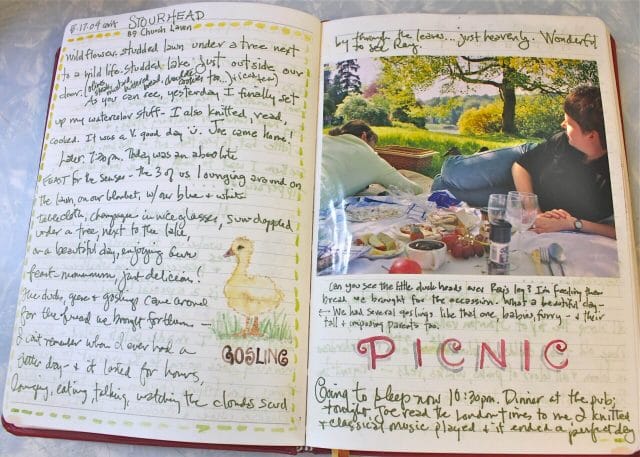 5.17.04
STOURHEAD
89 Church Lawn
Wildflower-studded lawn under a tree next
to a wild life-studded lake, just outside our
door.
As you can see, yesterday I finally set
up my watercolor stuff - I also knitted, read,
cooked. It was a v. good day. Joe came home!
Later. 7:30pm. Today was an absolute
FEAST for the senses - the 3 of us lounging around on
the lawn on our blanket, w/our blue & white
tablecloth, champagne in nice glasses, sun dappled
under a tree next to the lake
on a beautiful day, enjoying our
feast - mmmmmm just delicious!
The ducks, geese & goslings came around
for the bread we brought for them -
I can't remember when I ever had a
better day - & it lasted for hours,
lounging, eating, talking, watching the clouds scud
GOSLING
by through the leaves...just heavenly. Wonderful
to see Ray.
Can you see the little duck heads over Ray's leg? I'm feeding them
bread we brought for the occassion. What a beautiful day -
← We had several goslings like that one, babies, furry - & their
tall & imposing parents too.
PICNIC
Going to sleep now 10:30pm. Dinner at the pub;
tonight, Joe read the London Times to me I knitted
& classical music played & it ended a perfect day